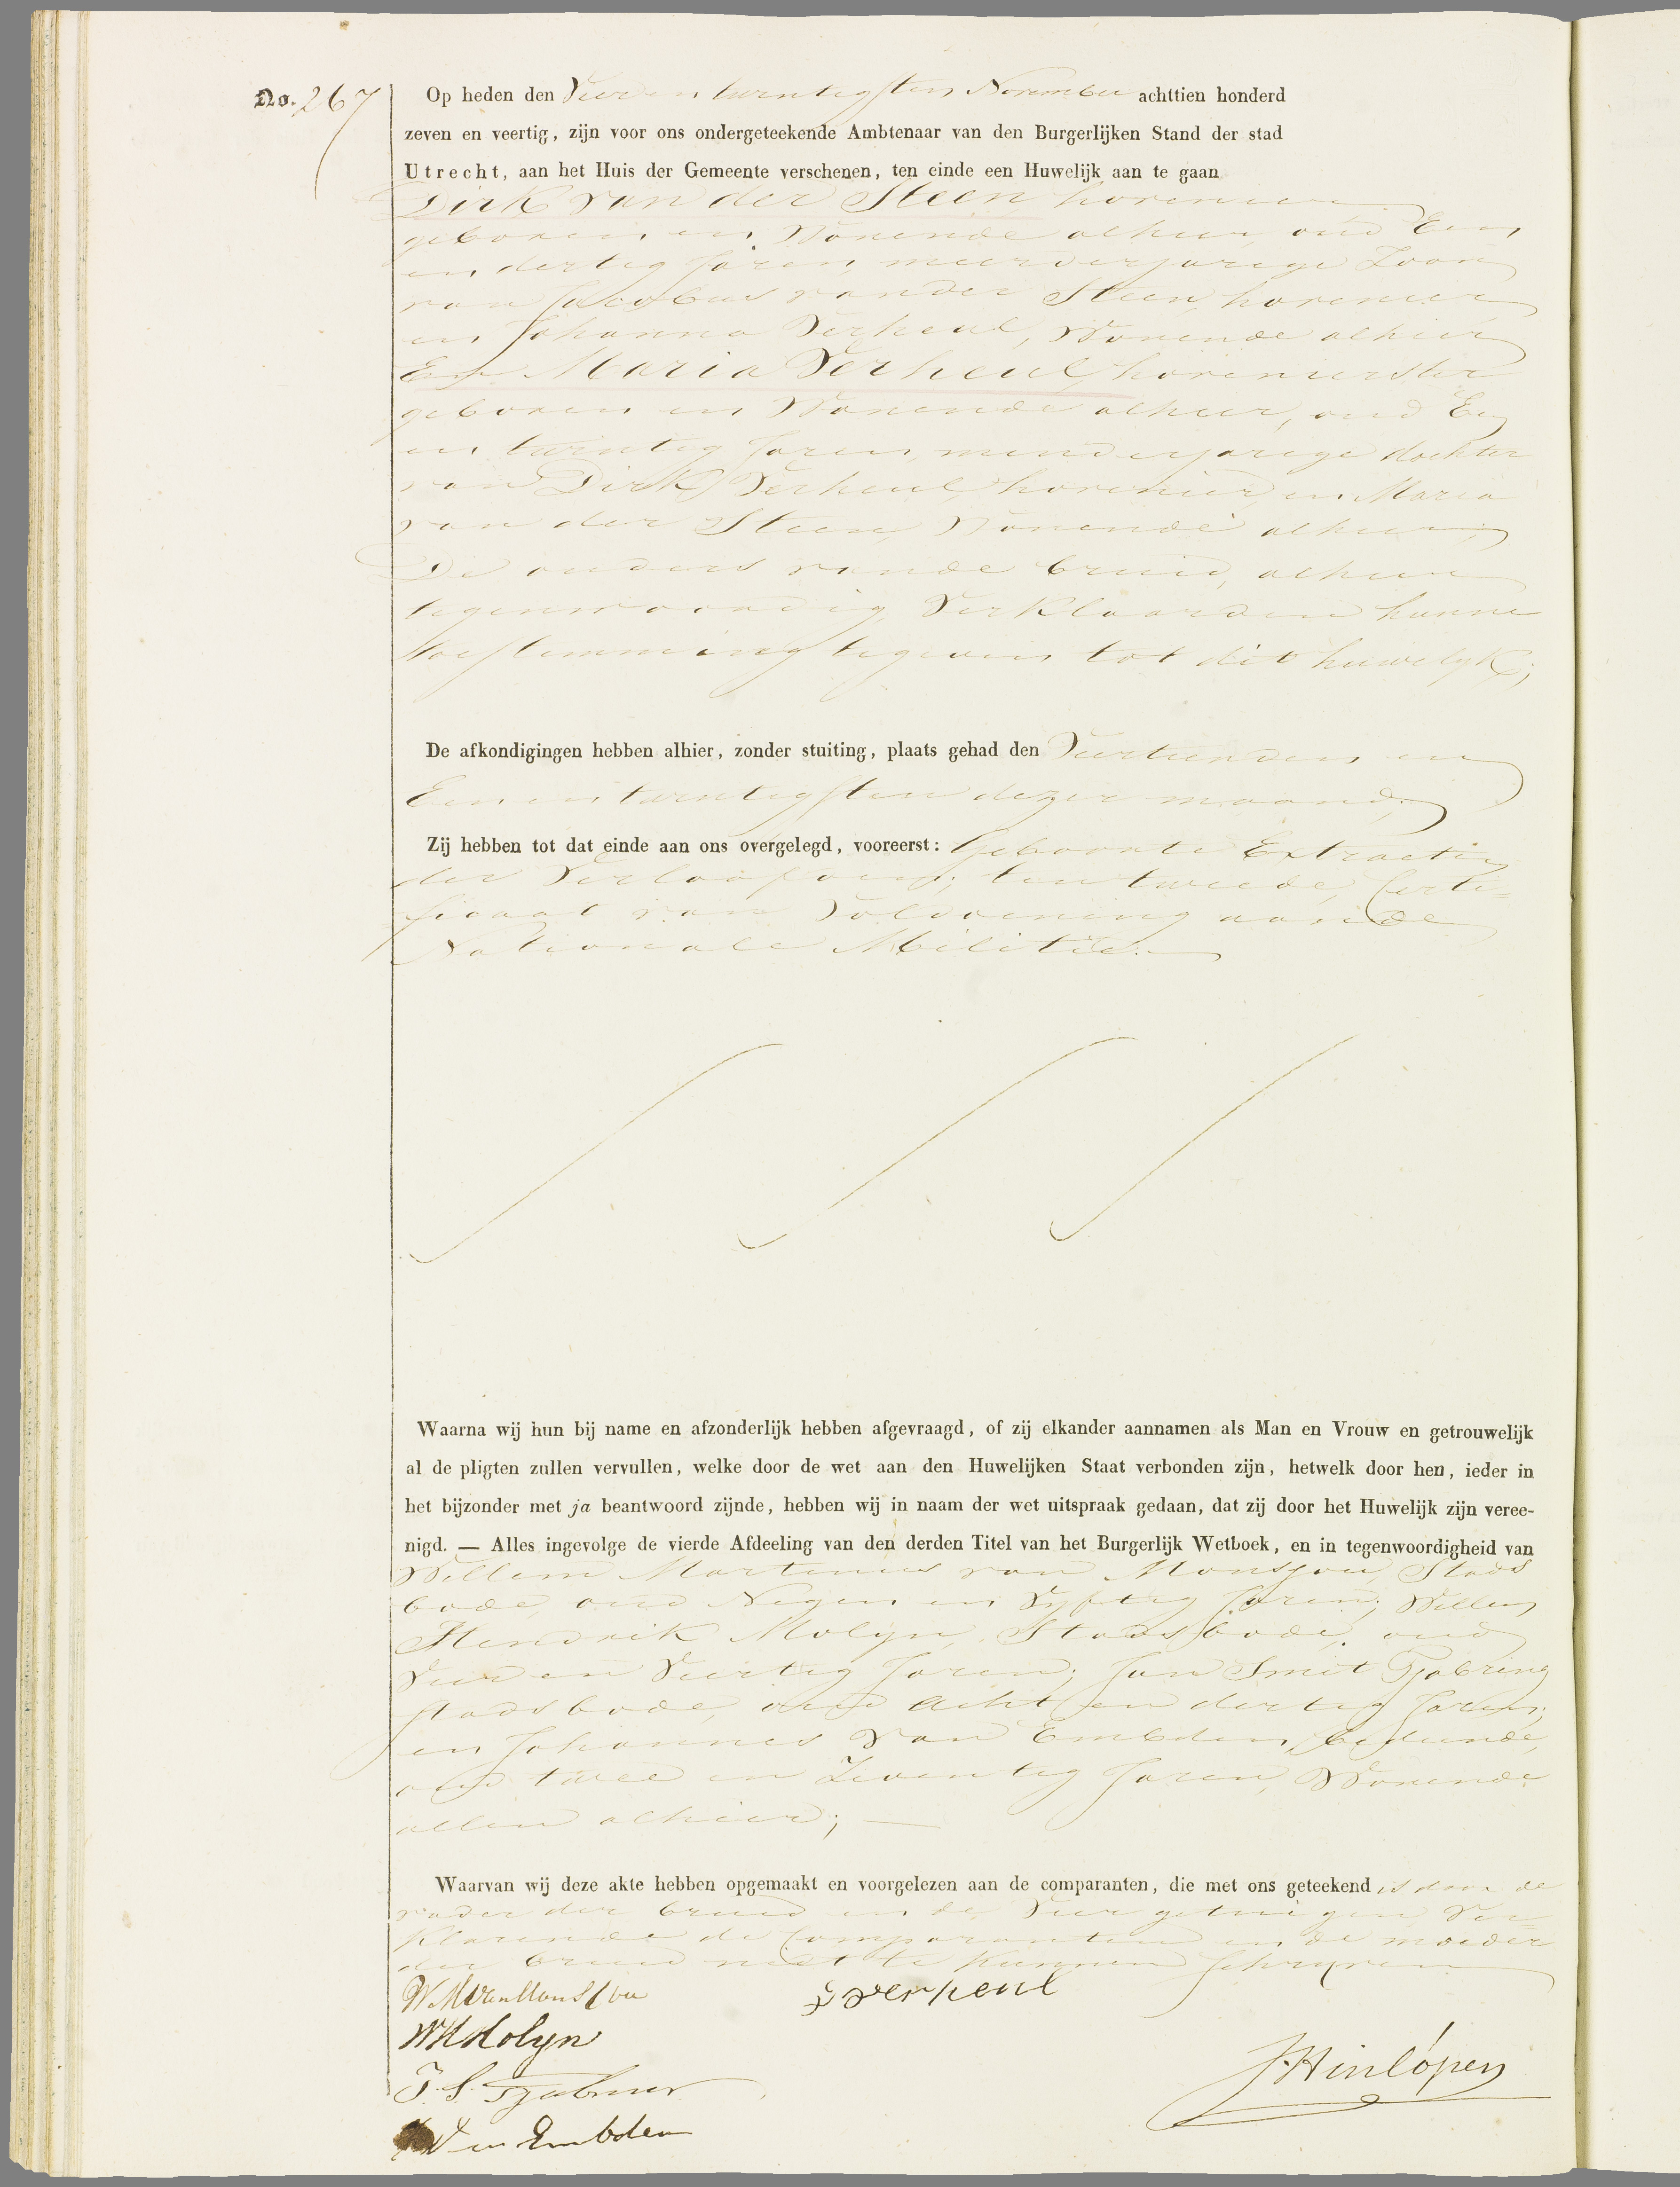 No. 267
Op heden den Vier en twintigsten November achttien honderd
zeven en veertig, zijn voor ons ondergeteekende Ambtenaar van den Burgerlijken Stand der stad
Utrecht, aan het Huis der Gemeente verschenen, ten einde een Huwelijk aan te gaan
Dirk van der Steen hovenier
geboren en Wonende alhier oud Een
en dertig Jaren, meerderjarige Zoon
van Jacobus van der Steen, hovenier
en Johanna Verheul, Wonende alhier
En Maria Verheul, hovenierster
geboren en Wonende alhier, oud Een
en twintig Jaren, minderjarige dochter
van Dirk Verheul hovenier, en Maria
van der Steen, Wonende alhier;
De ouders van de bruid, alhier
tegenwoordig, Verklaarden hunne
toestemming tegeven tot dit huwelyk;
De afkondigingen hebben alhier, zonder stuiting, plaats gehad den Veertienden en
Een en twintigsten dezer maand;
Zij hebben tot dat einde aan ons overgelegd, vooreerst: Geboorte Extracten
der Verloofden; ten tweede, Certi=
ficaat van Voldoening aan de
Nationale Militie.
Waarna wij hun bij name en afzonderlijk hebben afgevraagd, of zij elkander aannamen als Man en Vrouw en getrouwelijk
al de pligten zullen vervullen, welke door de wet aan den Huwelijken Staat verbonden zijn, hetwelk door hen, ieder in
het bijzonder met ja beantwoord zijnde, hebben wij in naam der wet uitspraak gedaan, dat zij door het Huwelijk zijn veree-
nigd. — Alles ingevolge de vierde Afdeeling van den derden Titel van het Burgerlijk Wetboek, en in tegenwoordigheid van
Willem Martinus van Monsjou, Stads
bode, oud Negen en Vyftig Jaren; Willem
Hendrik Molyn, Stadsbode, oud
Vier en Veertig Jaren; Jan Smit Tjabring
stadsbode, oud Acht en dertig Jaren;
en Johannes van Embden, bediende,
oud twee en Zeventig Jaren, Wonende
allen alhier; —
Waarvan wij deze akte hebben opgemaakt en voorgelezen aan de comparanten, die met ons geteekend is door de
vader der bruid en de Vier getuigen Ver=
klarende de Comparanten en de moeder
der bruid niet te kunnen schryven
W. M. van Monsjou
D Verheul
WH Molyn
J. Hinlópen
J. S. Tjabring
van Embden